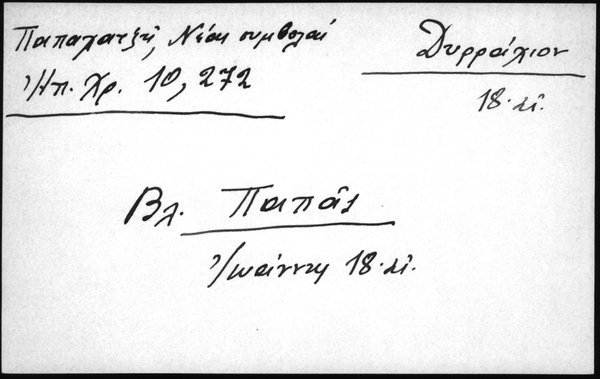 Παπαχατζῆ, Νέαι συμβολαί
Ἠπ. Χρ. 10, 272
Δυρράχιον
18. αἰ.
Βλ. Παπᾶς
Ἰωάννης 18. αἰ.